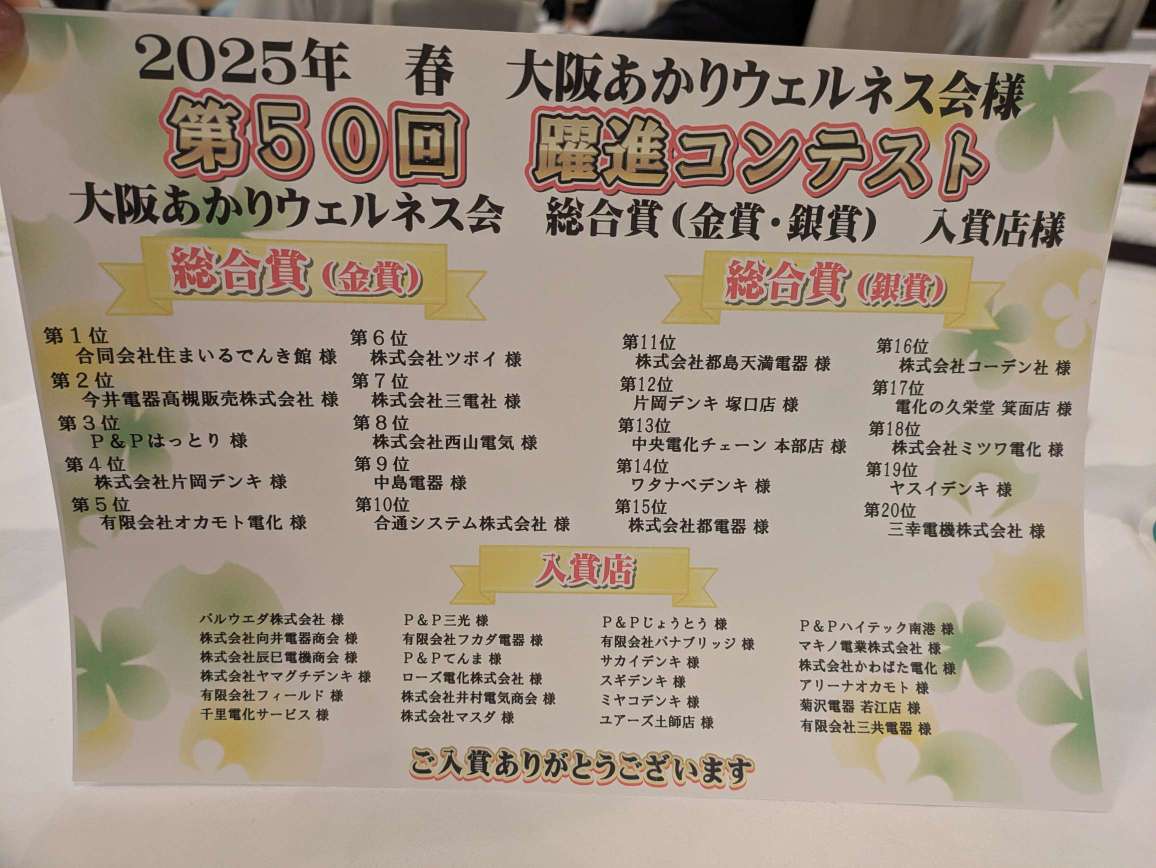 2025年 春 大阪あかりウェルネス会様
第50回 躍進コンテスト
大阪あかりウェルネス会 総合賞(金賞・銀賞) 入賞店様
総合賞(金賞)
第1位
合同会社住まいるでんき館 様
第2位
今井電器高槻販売株式会社 様
第3位
P&Pはっとり 様
第4位
株式会社片岡デンキ 様
第5位
有限会社オカモト電化 様
第6位
株式会社ツボイ 様
第7位
株式会社三電社 様
第8位
株式会社西山電気 様
第9位
中島電器 様
第10位
合通システム株式会社 様
総合賞(銀賞)
第11位
株式会社都島天満電器 様
第12位
片岡デンキ 塚口店 様
第13位
中央電化チェーン 本部店 様
第14位
ワタナベデンキ 様
第15位
株式会社都電器 様
第16位
株式会社コーデン社 様
第17位
電化の久栄堂 箕面店 様
第18位
株式会社ミツワ電化 様
第19位
ヤスイデンキ 様
第20位
三幸電機株式会社 様
入賞店
バルウエダ株式会社 様
株式会社向井電器商会 様
株式会社辰巳電機商会 様
株式会社ヤマグチデンキ 様
有限会社フィールド 様
千里電化サービス 様
P&P三光 様
有限会社フカダ電器 様
P&Pてんま 様
ローズ電化株式会社 様
株式会社井村電気商会 様
株式会社マスダ 様
P&Pじょうとう 様
有限会社バナブリッジ 様
サカイデンキ 様
スギデンキ 様
ミヤコデンキ 様
ユアーズ土師店 様
P&Pハイテック南港 様
マキノ電業株式会社 様
株式会社かわばた電化 様
アリーナオカモト 様
菊沢電器 若江店 様
有限会社三共電器 様
ご入賞ありがとうございます